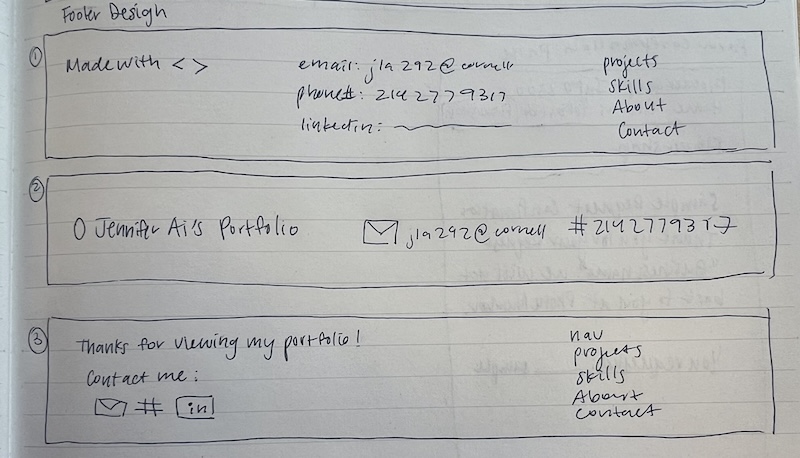 Footer Design
①
Made with < >
email: jla292@cornell
phone#: 2142779317
linkedin:
projects
skills
About
Contact
②
O Jennifer Ai's Portfolio
jla292@cornell
#2142779317
③
Thanks for viewing my portfolio!
Contact me:
# in
nav
projects
skills
About
contact